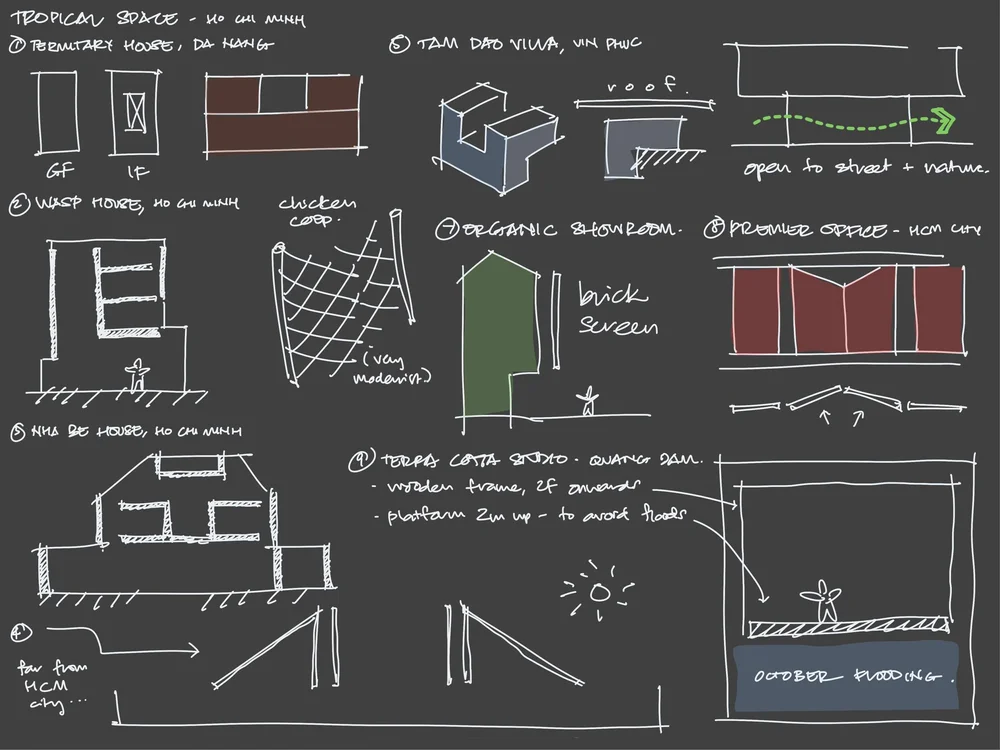 TROPICAL SPACE - HO CHI MINH
① TERMITARY HOUSE, DA NANG
GF
1F
② WASP HOUSE, HO CHI MINH
chicken
coop.
(very
modernist)
③ NHA BE HOUSE, HO CHI MINH
④
far from
HCM
city...
⑤ TAM DAO VILLA, VIN PHUC
roof.
open to street + nature.
⑦ ORGANIC SHOWROOM.
brick
screen
⑧ PREMIER OFFICE - HCM CITY
⑨ TERRA COTTA STUDIO - QUANG DAM.
- wooden frame, 2F onwards
- platform 2m up - to avoid floods
OCTOBER FLOODING.